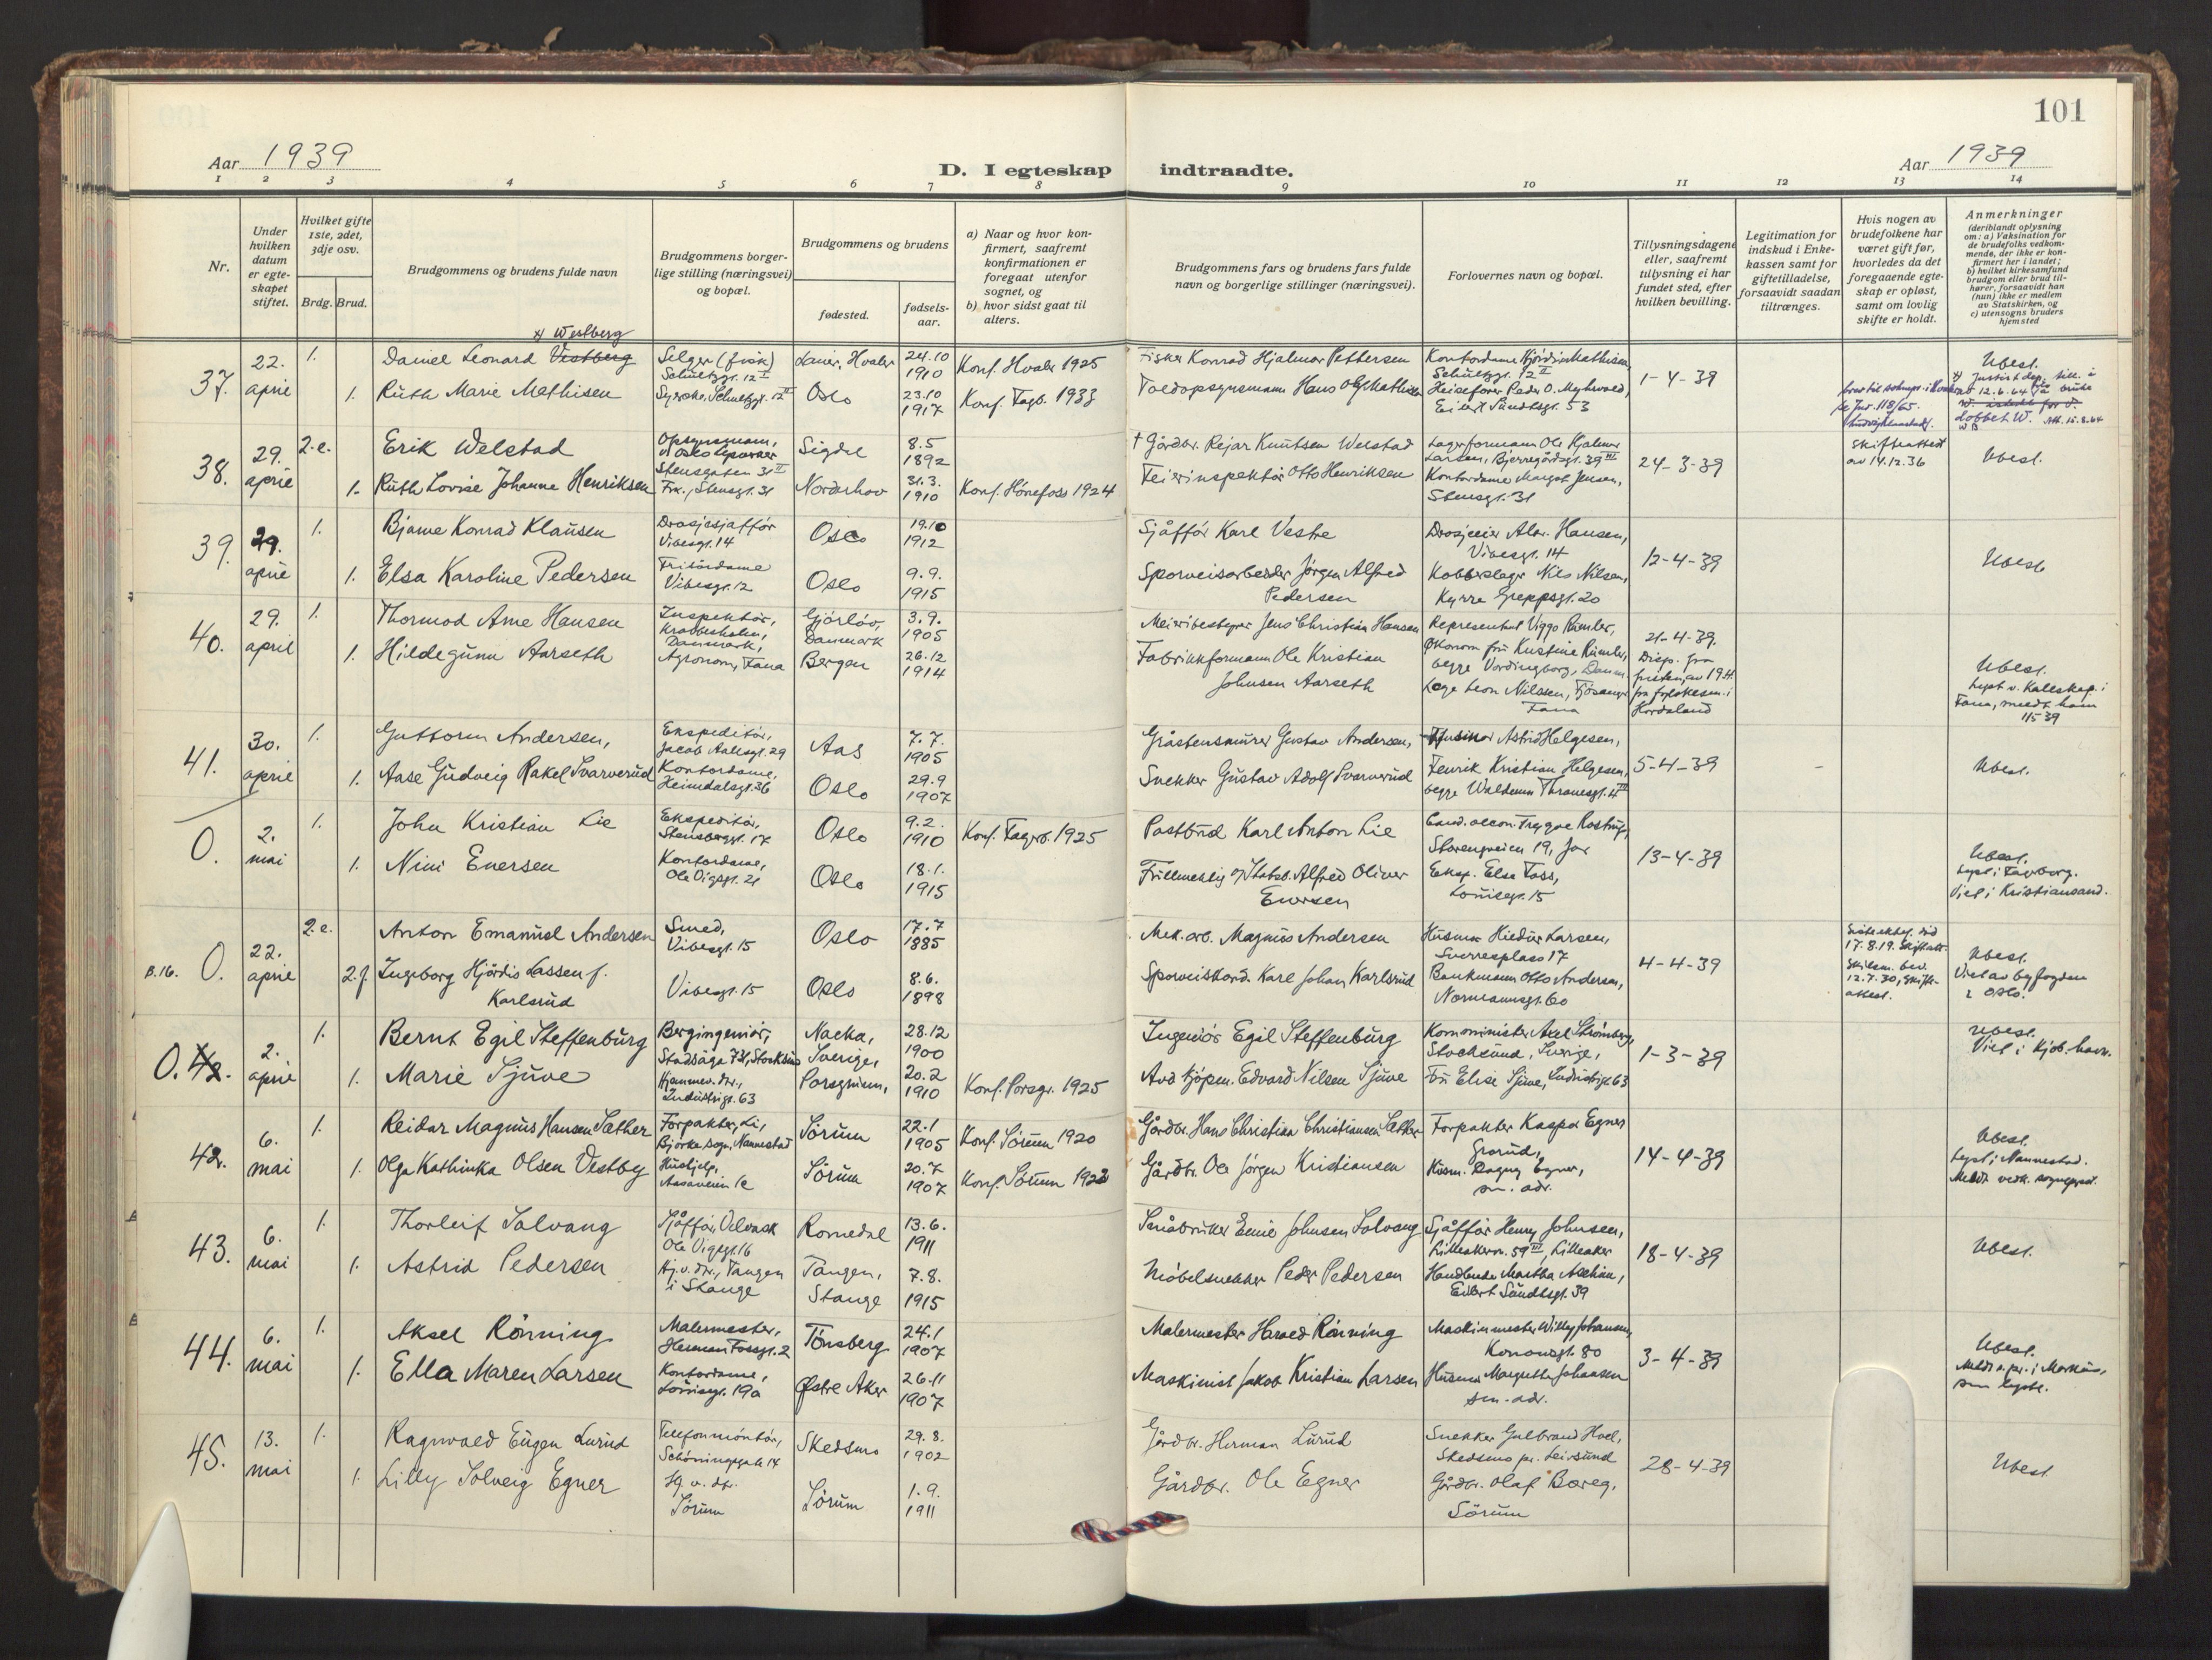 101
Aar 1939
D. I egteskap indtraadte.
Aar 1939
1 2 3 4 5 6 7 8 9 10 11 12 13 14
Nr.
Under hvilken datum er egteskapet stiftet.
Hvilket gifte 1ste, 2det, 3dje osv.
Brdg. Brud.
Brudgommens og brudens fulde navn
Brudgommens borgerlige stilling (næringsvei) og bopæl.
Brudgommens og brudens
fødested.
fødselsaar.
a) Naar og hvor konfirmert, saafremt konfirmationen er foregaat utenfor sognet, og
b) hvor sidst gaat til alters.
Brudgommens fars og brudens fars fulde navn og borgerlige stillinger (næringsvei).
Forlovernes navn og bopæl.
Tillysningsdagene eller, saafremt tillysning ei har fundet sted, efter hvilken bevilling.
Legitimation for indskud i Enkekassen samt for giftetilladelse, forsaavidt saadan tiltrænges.
Hvis nogen av brudefolkene har været gift før, hvorledes da det foregaaende egteskap er opløst, samt om lovlig skifte er holdt.
Anmerkninger
(deriblandt oplysning om: a) Vaksination for de brudefolks vedkommende, der ikke er konfirmert her i landet;
b) hvilket kirkesamfund brudgom eller brud tilhører, forsaavidt han (hun) ikke er medlem av Statskirken, og
c) utensogns bruders hjemsted
37. 22. april 1. Daniel Leonard Vestberg x) Westberg Selger (fisk) Schultzgt. 12 I Lauer, Hvaler 24.10 1910 Konf. Hvaler 1925 Fisker Konrad Hjalmar Pettersen 1-4-39 Ubest.
1. Ruth Marie Mathisen Syerske, Schultzgt. 12 II Oslo 23.10 1917 Konf. Fagb. 1933 Eilert Sundtsgt. 53
38. 29. april 2.e. Erik Welstad Opsynsmann, Stensgaten 31 II Sigdal 8.5 1892 † Gårdbr. Rejar Knutsen Welstad Lagerformann Ole Hjalmar Larsen, Bjerregårdsgt. 39 III 24-3-39 Skifteattest av 14.12.36 Ubest.
1. Ruth Lovise Johanne Henriksen Frk., Stensgt. 31 Norderhov 31.3. 1910 Konf. Hønefoss 1924 Feierinspektør Otto Henriksen Kontordame Margot Jensen, Stensgt. 31
39. 29. april 1. Bjarne Konrad Klausen Drosjesjåffør Vibesgt. 14 Oslo 19.10 1912 Sjåffør Karl Vestre Drosjeeier Alw. Hansen, Vibesgt. 14 12-4-39 Ubest.
1. Elsa Karoline Pedersen Frisørdame Vibesgt. 12 Oslo 9.9. 1915 Sporveisarbeider Jørgen Alfred Pedersen Kobberslager Nils Nilsen, Kyrre Greppsgt. 20
40. 29. april 1. Thormod Arne Hansen Inspektør, Krabbesholm, Danmark, Gjørløv, Danmark 3.9. 1905 Meieribestyrer Jens Christian Hansen Representant Viggo Rümler, 21-4-39. Disp. fra
1. Hildegunn Aarseth Agronom, Fana Bergen 26.12 1914 Fabrikkformann Ole Kristian Johnsen Aarseth begge Vordingborg, Danm. Læge Leon Nilssen, Fjøsanger Fana fra fylkesm. i Hordaland Ubest. Lyst v. Kallskap. i Fana, meldt ham 11539
41. 30. april 1. Guttorm Andersen, Ekspeditør, Jacob Aallsgt. 29 Aas 7.7. 1905 Gråstensmurer Gustav Andersen, Husmor Astrid Helgesen, 5-4-39 Ubest.
1. Aase Gudveig Rakel Svarverud Kontordame, Heimdalsgt. 36 Oslo 29.9 1907 Snekker Gustav Adolf Svarverud Fenrik Kristian Helgesen, begge Waldemar Thranesgt. 4 III
0. 2. mai 1. John Kristian Lie Ekspeditør, Stensberggt. 17 Oslo 9.2. 1910 Konf. Fagerb. 1925 Postbud Karl Anton Lie Cand. oecon. Trygve Rostrup, Storengveien 19, Jar 13-4-39 Ubest. Lyst i Fagerborg. Viet i Kristiansand.
1. Nini Enersen Kontordame, Ole Vigsgt. 21 Oslo 18.1. 1915 Fullmektig v/ Statsb. Alfred Oliver Enersen Eksp. Else Foss, Louisesgt. 15
B.16. 0. 22. april 2.e. Anton Emanuel Andersen Smed, Vibesgt. 15 Oslo 17.7 1885 Mek. arb. Magnus Andersen Husmor Hildur Larsen, Sverresplass 17 4-4-39 Ubest. Viet av byfogden i Oslo.
2.f. Ingeborg Hjördis Lassen f. Karlsrud Vibesgt. 15 Oslo 8.6. 1898 Sporveiskond. Karl Johan Karlsrud Bankmann Otto Andersen, Normannsgt. 60
0. 42. 2. april 1. Bernt Egil Steffenburg Bergingeniør, Nacka, Sverige, 28.12 1900 Ingeniør Egil Steffenburg Komminister Axel Strömberg, Stocksund, Sverige, 1-3-39 Ubest. Viet i Kjøb.havn.
1. Marie Tjuve Hjemmev. dtr., Industrigt. 63 Porsgrunn, 20.2 1910 Konf. Porsgr. 1925 Avd kjøpm. Edvard Nilsen Tjuve Fru Elise Tjuve, Industrigt. 63
42. 6. mai 1. Reidar Magnus Hansen Sæther Forpakter, Li, Bjørke sogn, Nannestad Sørum 22.1 1905 Konf. Sørum 1920 Gårdbr. Hans Christian Christiansen Sæther Forpakter Kaspar Egner Grorud, 14-4-39 Ubest. Lyst i Nannestad.
1. Olga Kathinka Olsen Vestby Hushjelp, Aasaveien 1c Sørum 20.7 1907 Konf. Sørum 1922 Gårdbr. Ole Jørgen Kristiansen Husm. Dagny Egner, sm. adr.
43. 6. mai 1. Thorleif Solvang Sjåffør, Ole Vigsgt. 16 Romedal 13.6. 1911 Småbruker Emil Johnsen Solvang Sjåffør Henry Johnsen, Lilleakerv. 59 III, Lilleaker 18-4-39 Ubest.
1. Astrid Pedersen Hj.v. dtr., Tangen i Stange Tangen, Stange 7.8. 1915 Møbelsnekker Peder Pedersen Eilert Sundtsgt. 39
44. 6. mai 1. Aksel Rönning Malermester, Herman Fossgt. 2 Tønsberg 24.1 1907 Malermester Harald Rönning Maskinmester Willy Johansen, 3-4-39 Ubest.
1. Ella Maren Larsen Kontordame, Louisesgt. 19a Østre Aker 26.11 1907 Maskinist Jakob Kristian Larsen Husmor Margrethe Johansen sm. adr.
45. 13. mai 1. Ragnvald Eugen Lurud Telefonmontør, Schøningsgate 14 Skedsmo 29.8. 1902 Gårdbr. Herman Lurud Snekker Gulbrand Hoel, Skedsmo pr. Leirsund 28-4-39 Ubest
1. Lilly Solveig Egner Hj. v. dtr. Sørum Sørum 1.9. 1911 Gårdbr. Ole Egner Gårdbr. Olaf Boreg, Sørum